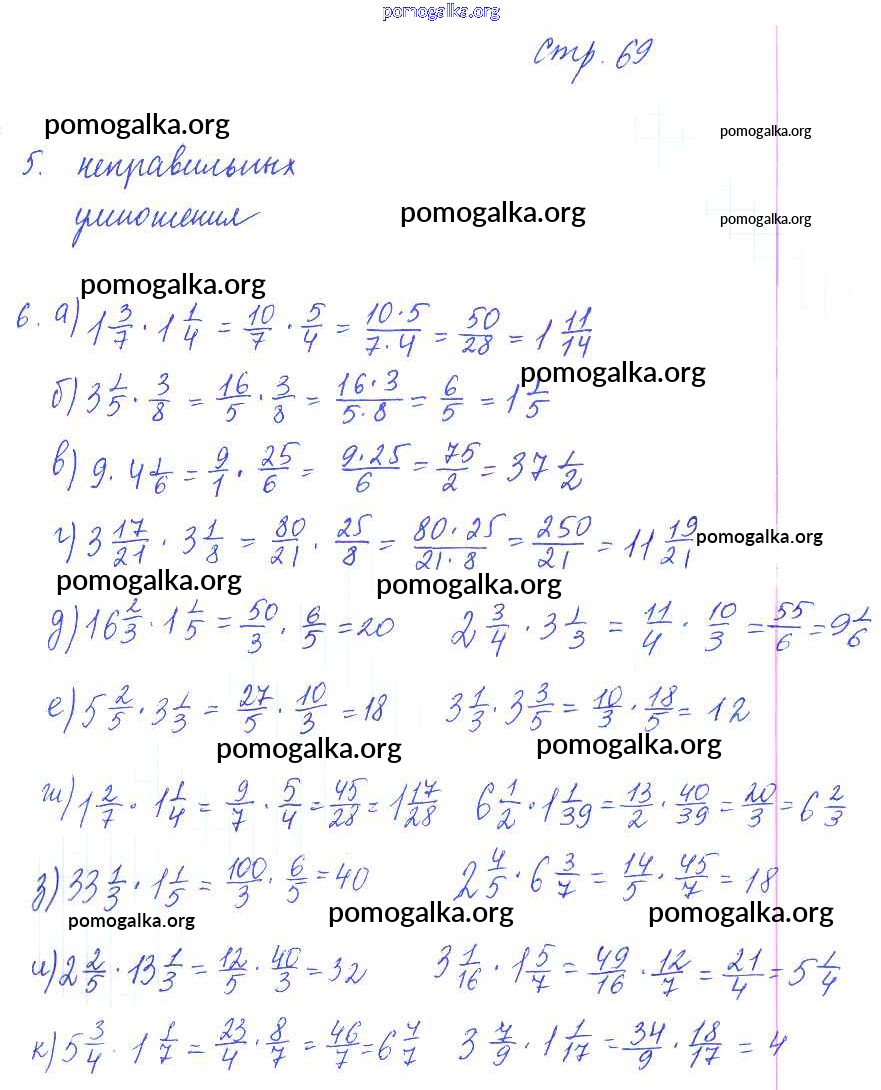 pomogalka.org
стр. 69
pomogalka.org pomogalka.org
5. неправильных
умножения
pomogalka.org pomogalka.org
pomogalka.org
6. а) 1 3/7 · 1 1/4 = 10/7 · 5/4 = 10·5/7·4 = 50/28 = 1 11/14
pomogalka.org
б) 3 1/5 · 3/8 = 16/5 · 3/8 = 16·3/5·8 = 6/5 = 1 1/5
в) 9 · 4 1/6 = 9/1 · 25/6 = 9·25/6 = 75/2 = 37 1/2
г) 3 17/21 · 3 1/8 = 80/21 · 25/8 = 80·25/21·8 = 250/21 = 11 19/21
pomogalka.org
pomogalka.org pomogalka.org
д) 16 2/3 · 1 1/5 = 50/3 · 6/5 = 20 2 3/4 · 3 1/3 = 11/4 · 10/3 = 55/6 = 9 1/6
е) 5 2/5 · 3 1/3 = 27/5 · 10/3 = 18 3 1/3 · 3 3/5 = 10/3 · 18/5 = 12
pomogalka.org pomogalka.org
ж) 1 2/7 · 1 1/4 = 9/7 · 5/4 = 45/28 = 1 17/28 6 1/2 · 1 1/39 = 13/2 · 40/39 = 20/3 = 6 2/3
з) 33 1/3 · 1 1/5 = 100/3 · 6/5 = 40 2 4/5 · 6 3/7 = 14/5 · 45/7 = 18
pomogalka.org pomogalka.org pomogalka.org
и) 2 2/5 · 13 1/3 = 12/5 · 40/3 = 32 3 1/16 · 1 5/7 = 49/16 · 12/7 = 21/4 = 5 1/4
к) 5 3/4 · 1 1/7 = 23/4 · 8/7 = 46/7 = 6 4/7 3 7/9 · 1 1/17 = 34/9 · 18/17 = 4